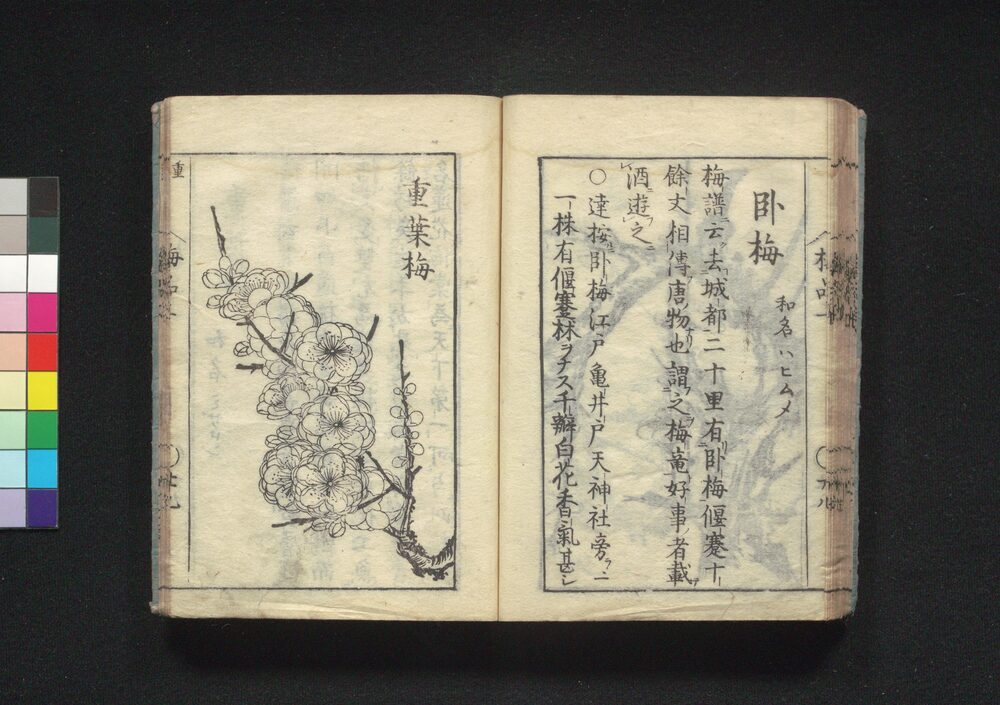 卧梅
和名ハヒムメ
梅譜ニ云去城都二十里有卧梅偃蹇十
餘丈相傳唐物也謂之梅竜好事者載
酒遊之
○達按卧梅江戸亀井戸天神社旁ニ
一株有偃蹇林ヲナス千瓣白花香氣甚シ
梅品
重葉梅
重
梅品